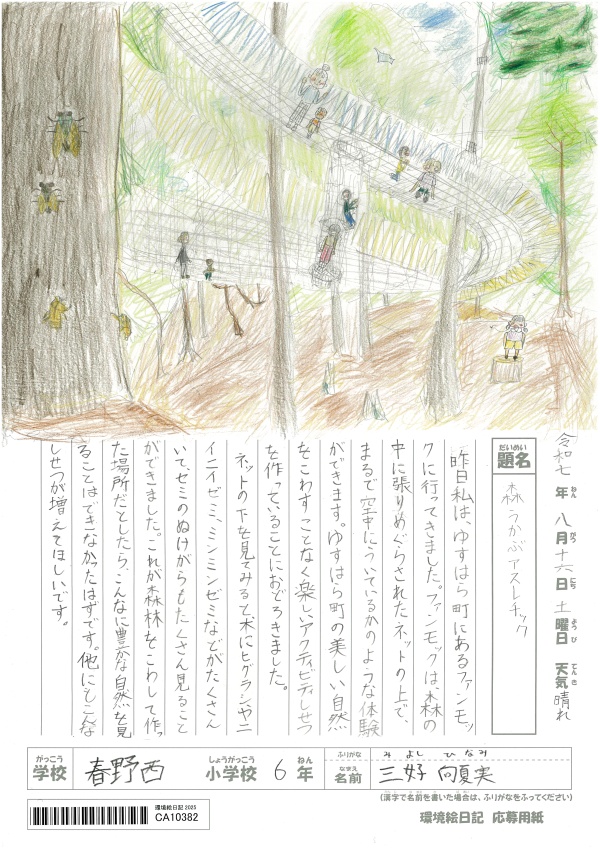 令和七年 八月十六日 土曜日 天気 晴れ
ねん がつ にち ようび てんき
だいめい
題名 森うかぶアスレチック
昨日私は、ゆすはら町にあるファンモッ
クに行ってきました。ファンモックは、森の
中に張りめぐらされたネットの上で、
まるで空中にういているかのような体験
ができます。ゆすはら町の美しい自然
をこわすことなく楽しいアクティビティしせつ
を作っていることにおどろきました。
ネットの下を見てみると、木にヒグラシやニ
イニイゼミ、ミンミンゼミなどがたくさん
いて、セミのぬけがらもたくさん見ること
ができました。これが森林をこわして作っ
た場所だとしたら、こんなに豊かな自然を見
ることはできなかったはずです。他にもこんな
しせつが増えてほしいです。
がっこう しょうがっこう ねん ふりがな みよし ひなみ
学校 春野西 小学校 6年 なまえ 名前 三好 向夏実
(漢字で名前を書いた場合は、ふりがなをふってください)
環境絵日記 2025
CA10382
環境絵日記 応募用紙